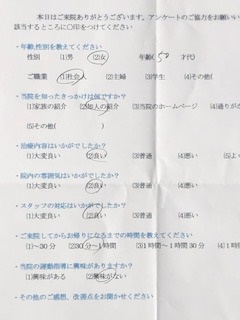 本日はご来院ありがとうございます。アンケートのご協力をお願いい
該当するところに○印をつけてください
・年齢,性別を教えてください
性別 (1)男 (2)女 年齢( 50 才代)
ご職業 (1)社会人 (2)主婦 (3)学生 (4)その他(
・当院を知ったきっかけは何ですか?
(1)家族の紹介 (2)知人の紹介 (3)当院のホームページ (4)通りが
(5)その他( )
・治療内容はいかがでしたか?
(1)大変良い (2)良い (3)普通 (4)悪い (5)大
・院内の雰囲気はいかがでしたか?
(1)大変良い (2)良い (3)普通 (4)悪い (5)
・スタッフの対応はいかがでしたか?
(1)大変良い (2)良い (3)普通 (4)悪い (5)
・ご来院してからお帰りになるまでの時間を教えてください
(1)~30分 (2)30分~1時間 (3)1時間~1時間30分 (4)1
・当院の運動指導に興味がありますか?
(1)興味がある (2)興味がない
・その他のご感想、改善点をお聞かせください